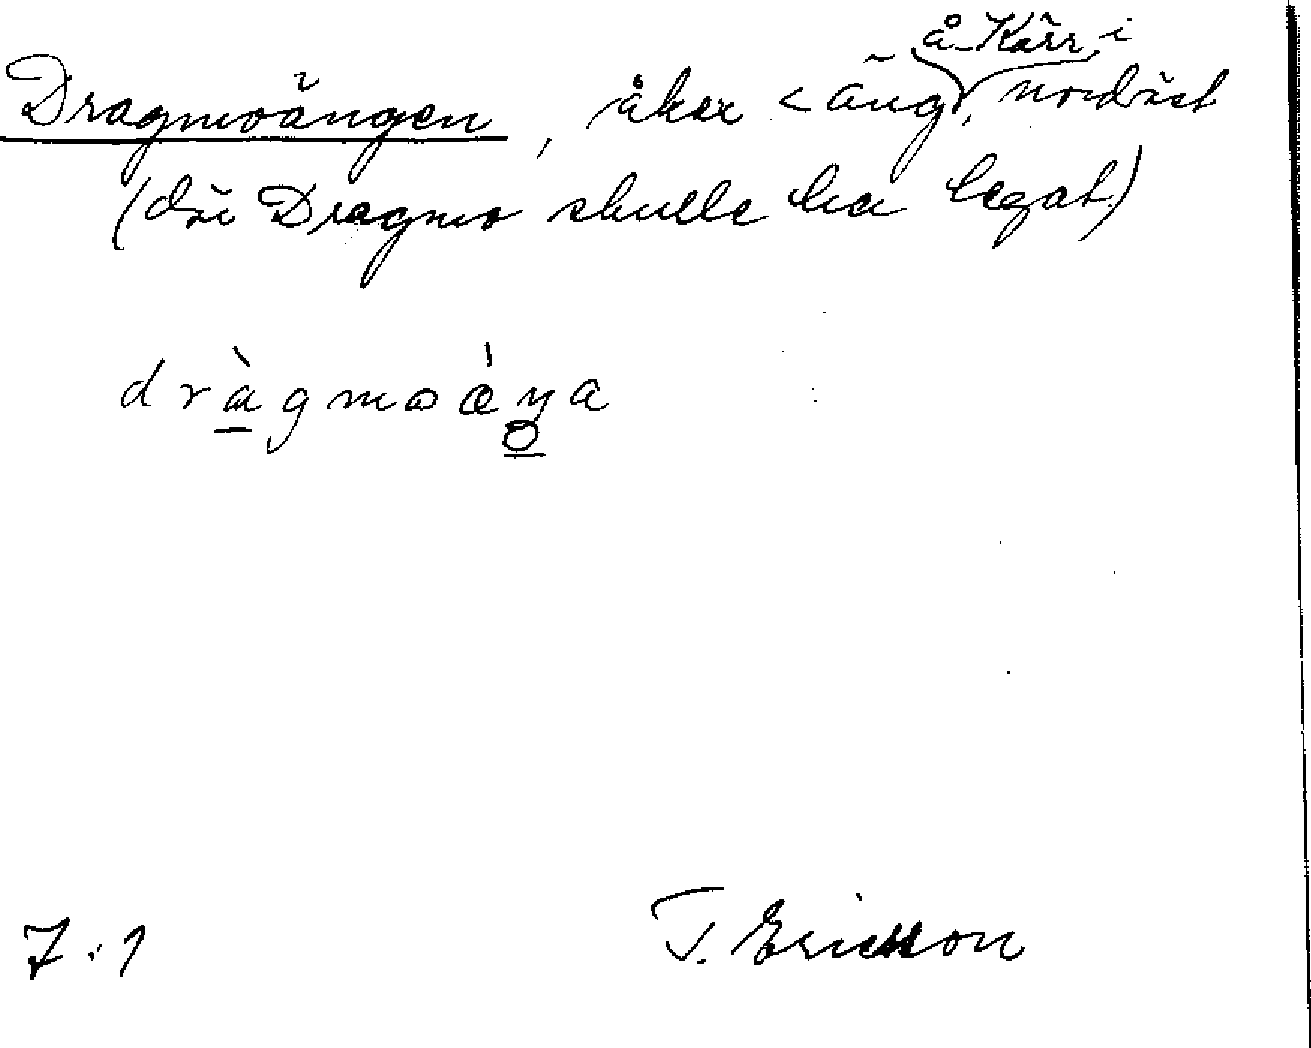 å Kärr i
Dragmoängen, åker < äng, nordöst
(där Dragmo skulle ha legat)
dràgmoǽŋa
7.1 T. Ericsson